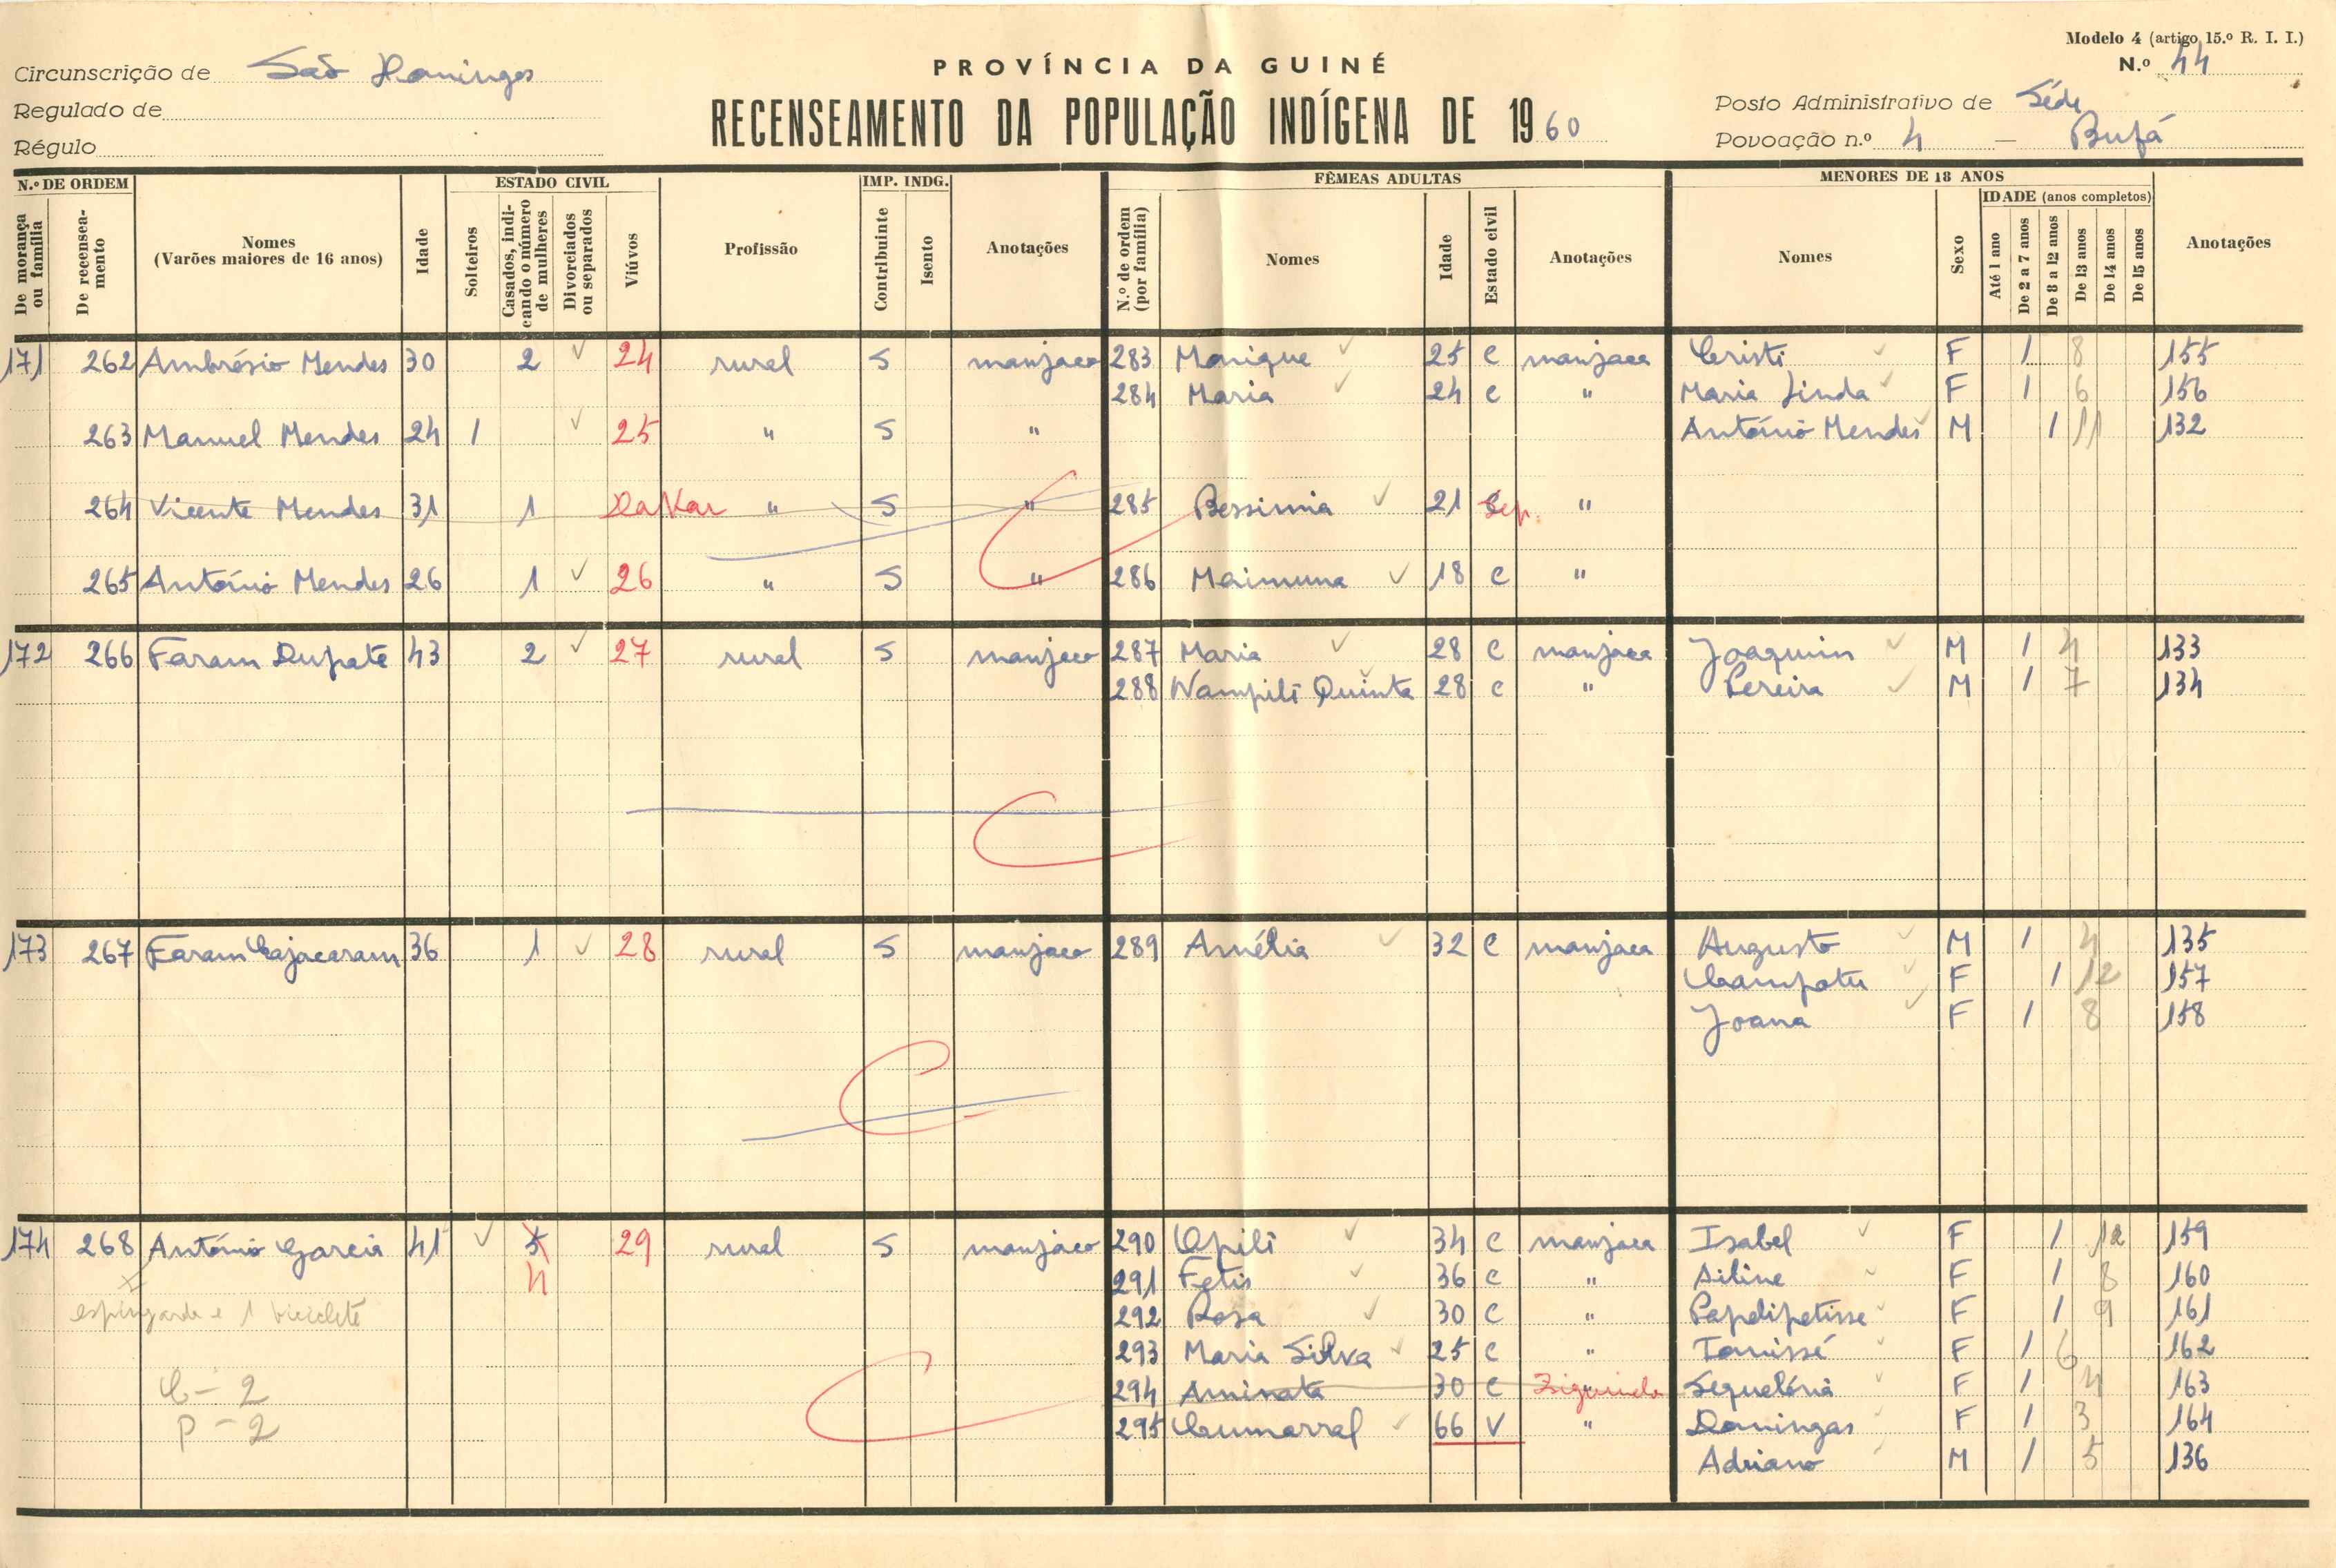 Modelo 4 (artigo 15.º R. I. I.)
N.º 44
Circunscrição de São Domingos
Regulado de
Régulo
PROVÍNCIA DA GUINÉ
RECENSEAMENTO DA POPULAÇÃO INDÍGENA DE 1960
Posto Administrativo de Séde
Povoação n.º 4 — Bufá
N.º DE ORDEM
De morança ou família
De recenseamento
Nomes
(Varões maiores de 16 anos)
Idade
ESTADO CIVIL
Solteiros
Casados, indicando o número de mulheres
Divorciados ou separados
Viúvos
Profissão
IMP. INDG.
Contribuinte
Isento
Anotações
FÊMEAS ADULTAS
N.º de ordem (por família)
Nomes
Idade
Estado civil
Anotações
MENORES DE 18 ANOS
Nomes
Sexo
IDADE (anos completos)
Até 1 ano
De 2 a 7 anos
De 8 a 12 anos
De 13 anos
De 14 anos
De 15 anos
Anotações
171 262 Ambrósio Mendes 30 2 24 rural S manjaco 283 Monique 25 C manjaca Cristi F 1 8 155
284 Maria 24 C " Maria Linda F 1 6 156
263 Manuel Mendes 24 1 25 " S " António Mendes M 1 11 132
264 Vicente Mendes 31 1 Dakar " S " 285 Bessimia 21 Sep. "
265 António Mendes 26 1 26 " S " 286 Maimuna 18 C "
172 266 Faram Dupate 43 2 27 rural S manjaco 287 Maria 28 C manjaca Joaquim M 1 4 133
288 Nampili Quinta 28 C " Pereira M 1 7 134
173 267 Faram Cajacaram 36 1 28 rural S manjaco 289 Amélia 32 C manjaca Augusto M 1 4 135
Campatu F 1 12 157
Joana F 1 8 158
174 268 António Garcia 41 5 29 rural S manjaco 290 Opili 34 C manjaca Isabel F 1 12 159
4 291 Fetis 36 C " Ailine F 1 8 160
espingarda e 1 bicicleta 292 Rosa 30 C " Papelipetisse F 1 9 161
293 Maria Silva 25 C " Tonissé F 1 6 162
C - 2 294 Aminata 30 C Ziguinchor Sequelória F 1 4 163
P - 2 295 Cumarral 66 V " Domingas F 1 3 164
Adriano M 1 5 136